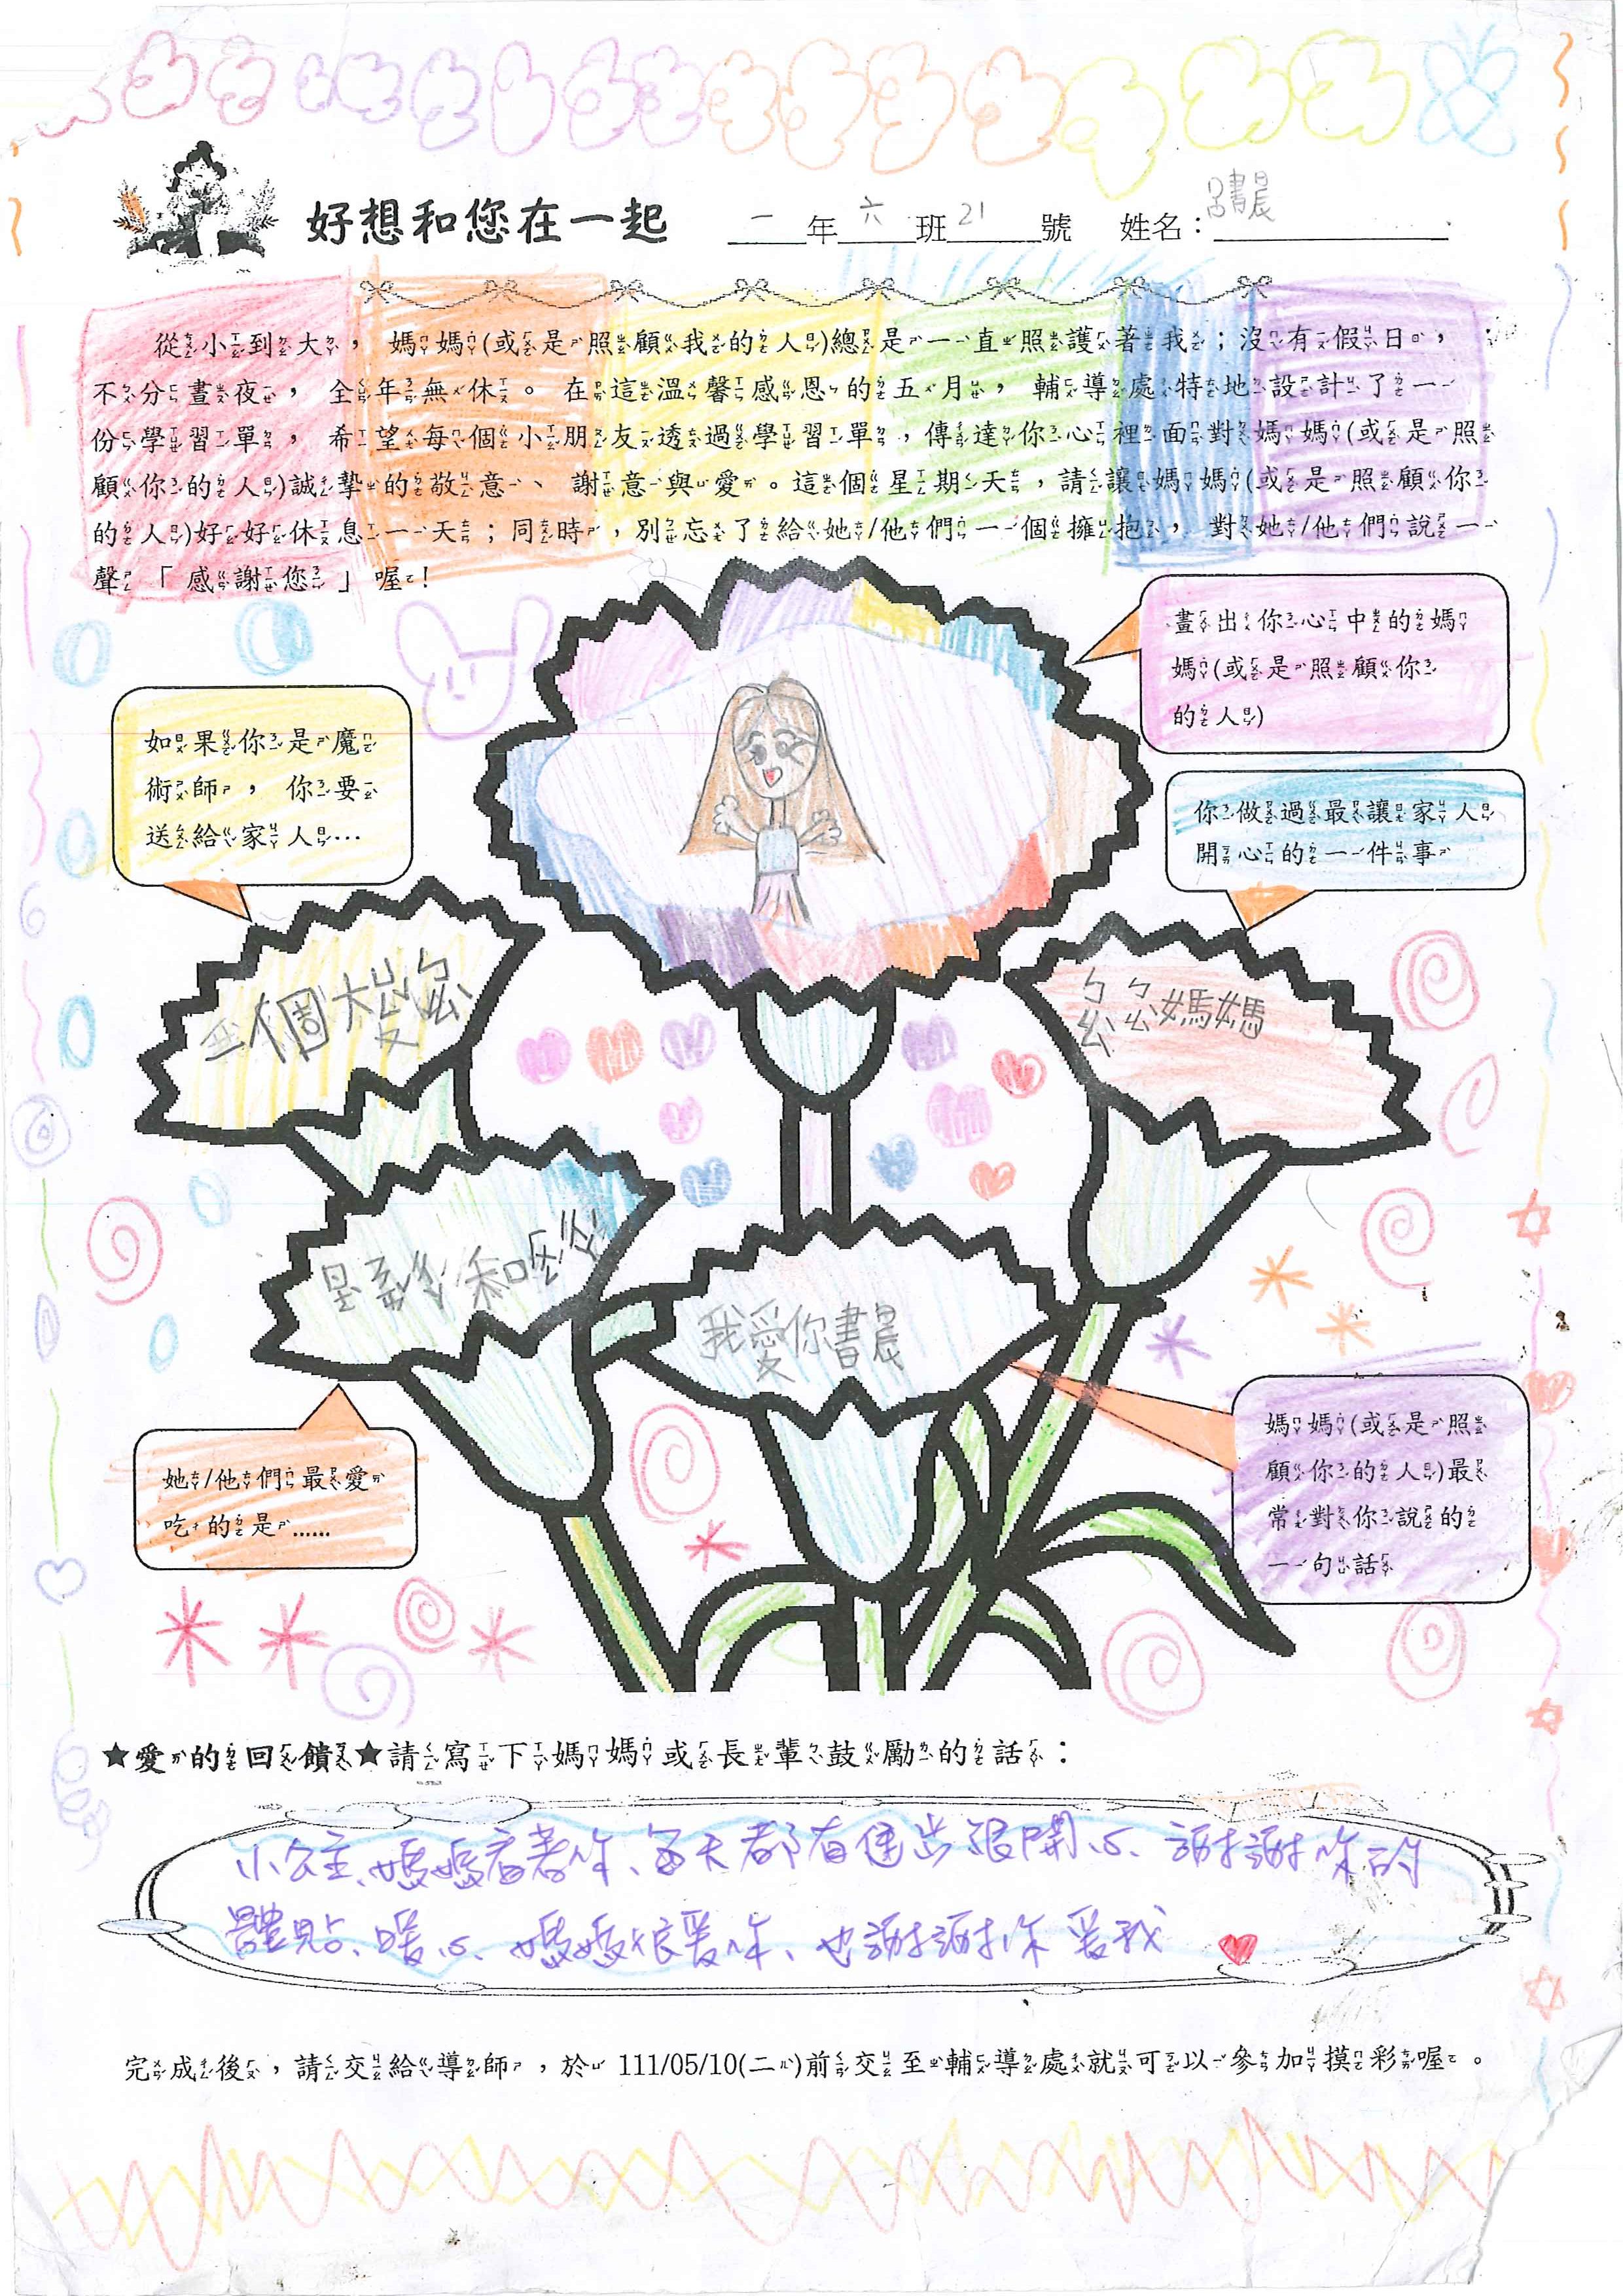 好想和您在一起 一年六班21號 姓名：呂書晨
從小到大，媽媽(或是照顧我的人)總是一直照護著我；沒有假日，
不分晝夜，全年無休。在這溫馨感恩的五月，輔導處特地設計了一
份學習單，希望每個小朋友透過學習單，傳達你心裡面對媽媽(或是照
顧你的人)誠摯的敬意、謝意與愛。這個星期天，請讓媽媽(或是照顧你
的人)好好休息一天；同時，別忘了給她/他們一個擁抱，對她/他們說一
聲「感謝您」喔！
畫出你心中的媽
媽(或是照顧你
的人)
如果你是魔
術師，你要
送給家人…
你做過最讓家人
開心的一件事
一個大ㄅㄠ
ㄅㄠㄅㄠ媽媽
我愛你書晨
她/他們最愛
吃的是……
媽媽(或是照
顧你的人)最
常對你說的
一句話
★愛的回饋★請寫下媽媽或長輩鼓勵的話：
小公主、媽媽看著你、每天都有進步很開心、謝謝你的
體貼、暖心、媽媽很愛你、也謝謝你愛我
完成後，請交給導師，於111/05/10(二)前交至輔導處就可以參加摸彩喔。